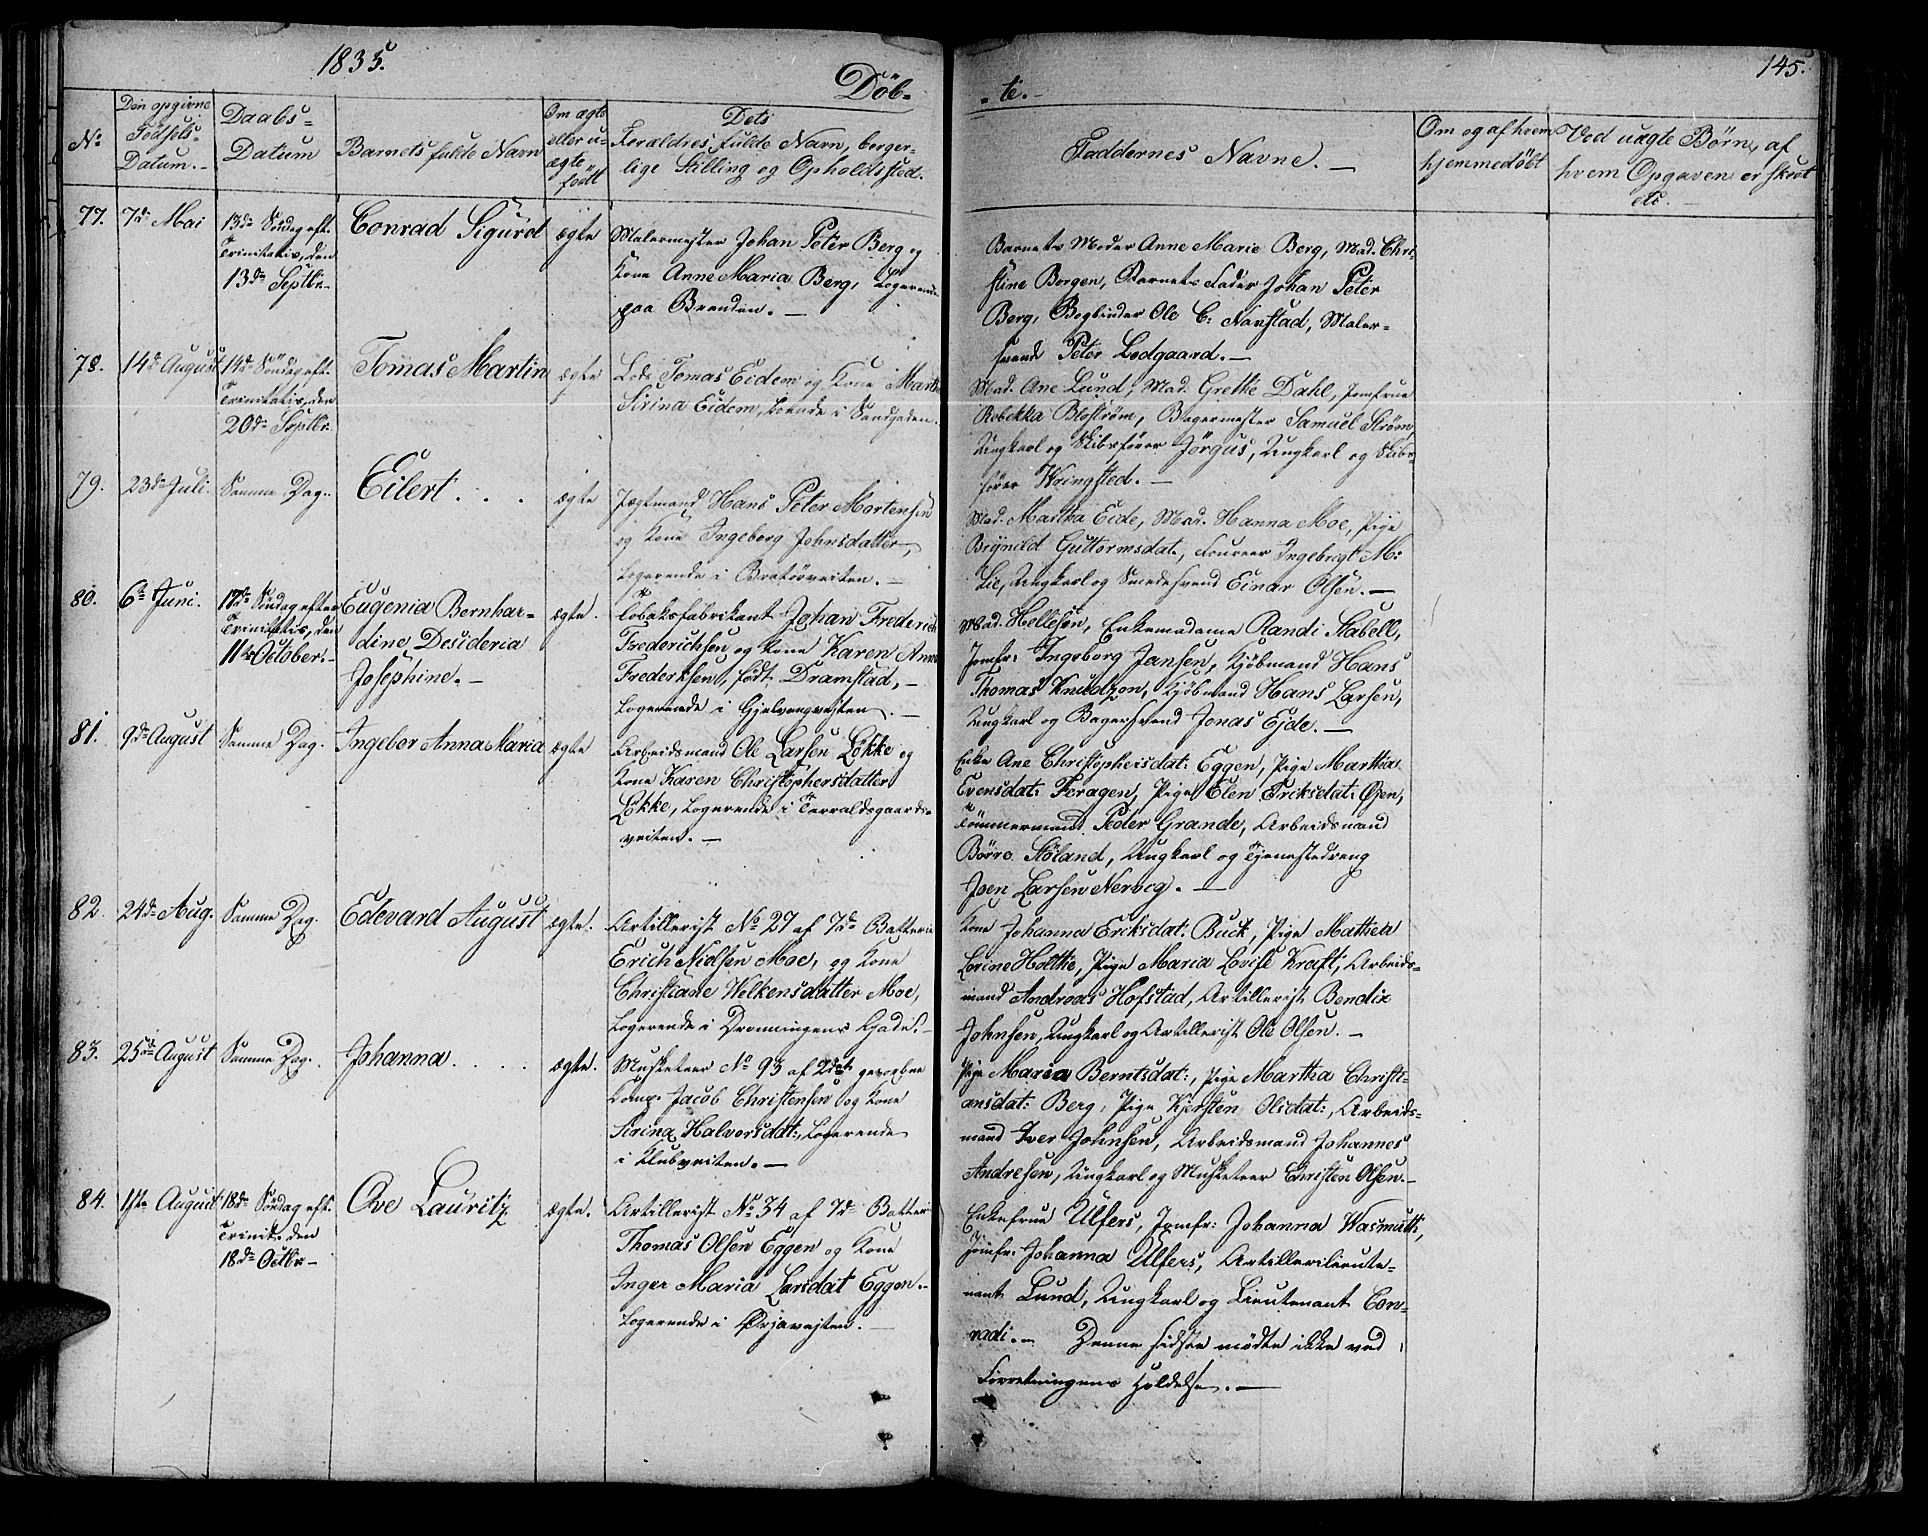 1835.
Döb-
-te.-
145.
No
Den opgivne
Födsels-
Datum.-
Daabs-
Datum
Barnets fulde Navn
Om ægte
eller u-
ægte
født
Dets
Forældres fulde Navn, borger-
lige Stilling og Opholdssted.
Faddernes Navne.-
Om og af hvem
hjemmedøbt
Ved uægte Børn, af
hvem Opgaven er skeet
etc.-
77.
7de Mai
13de Søndag eft.
Trinitatis, den
13de Septbr.
Conrad Sigurd
ægte
Malermester Johan Peter Berg og
Kone Anne Maria Berg, Logerende
paa Branden.-
Barnets Moder Anne Marie Berg, Mad. Chri-
stine Borgen, Barnets Fader Johan Peter
Berg, Bogbinder Ole C: Nanstad, Maler-
svend Peter Lodgaard.-
78.
14de August
14de Søndag eft.
Trinitatis, den
20de Septbr.
Tomas Martin
ægte
Lods Tomas Eidem og Kone Marth
Sirina Eidem, boende i Sandgaden.
Mad. Ane Lund, Mad. Grethe Dahl, Jomfrue
Rebekka Blostrøm, Bagermester Samuel Strøm,
Ungkarl og Skibsfører Jörgus, Ungkarl og Skibs-
fører Wringsted.-
79.
23de Juli.
Samme Dag.
Eilert . . .
ægte
Jægtmand Hans Peter Mortensen
og Kone Ingeborg Johnsdatter,
Logerende i Bratørveiten.-
Mad. Martha Eide, Mad. Hanna Moe, Pige
Brynild Guttormsdat., Foureer Ingebrigt M:
Lie, Ungkarl og Smedesvend Einar Olsen.-
80.
6te Juni.
17de Søndag efter
Trinitatis, den
11te October.-
Eugenia Bernhar-
dine Desideria
Josephine.-
ægte.
Tobaksfabrikant Johan Frederich
Frederichsen og Kone Karen Anne
Frederksen, født Dramstad,-
Logerende i Gjelvangveiten.-
Mad. Hellesen, Enkemadame Randi Stabell,
Jomfr: Ingeborg Jansen, Kjøbmand Hans
Thomas Knudtzon, Kjøbmand Hans Larsen,
Ungkarl og Bagersvend Jonas Ejde.-
81.
9de August
Samme Dag.
Ingebor Anna Maria
ægte
Arbeidsmand Ole Larsen Løkke og
Kone Karen Christophersdatter
Løkke, Logerende i Terraldsgaards-
veiten.-
Enke Ane Christophersdat: Eggen, Pige Martha
Evensdat: Feragen, Pige Elen Eriksdat: Øien,
Tömmermand Peder Grande, Arbeidsmand
Börre Støland, Ungkarl og Tjenestedreng
Joen Larsen Nerbog.-
82.
24de Aug.
Samme Dag.
Edevard August
ægte.
Artillerist No 27 af 7de Batterie
Erich Nielsen Moe, og Kone
Christiane Welkensdatter Moe,
Logerende i Dronningens Gade.-
Kone Johanna Eriksdat. Buck, Pige Mathea
Lorine Holthe, Pige Maria Lovise Kraft, Arbeids-
mand Andreas Hofstad, Artillerist Bendix
Johnsen, Ungkarl og Artillerist Ole Olsen.-
83.
25de August
Samme Dag.
Johanna . . . .
ægte.
Musketeer No 93 af 2det gevorbne
Comp. Jacob Christensen og Kone
Sirina Halvorsdat:, Logerende
i Klubveiten.-
Pige Maria Berntsdat:, Pige Martha Christi-
ansdat: Berg, Pige Kjersten Olsdat:, Arbeids-
mand Iver Johnsen, Arbeidsmand Johannes
Andresen, Ungkarl og Musketeer Christen Olsen.-
84.
11te August
18de Søndag eft.
Trinit. den
18de Octbr-
Ove Lauritz
ægte.
Artillerist No 34 af 7de Batteri
Thomas Olsen Eggen og Kone
Inger Maria Larsdat Eggen.-
Logerende i Ørjaveiten.-
Enkefrue Ulfers, Jomfr: Johanna Wasmuth,
Jomfr: Johanna Ulfers, Artillerilieute-
nant Lund, Ungkarl og Lieutenant Con-
radi.- Denne sidste mødte ikke ved
Forretningens Holdelse.-